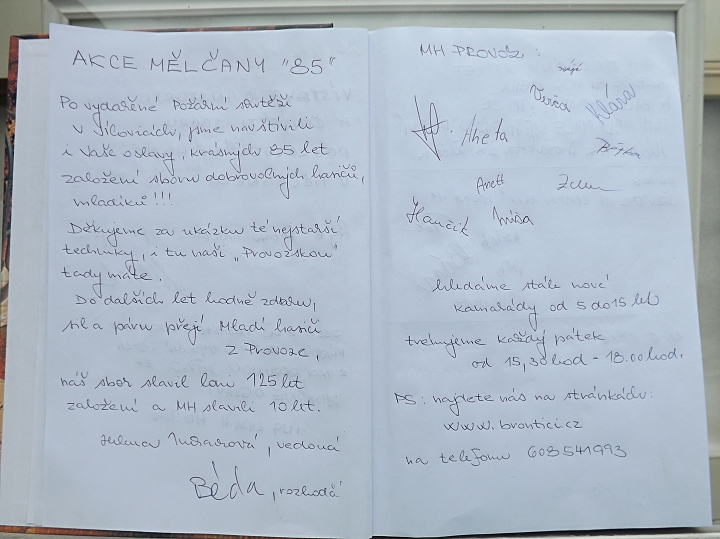 AKCE MĚLČANY "85"
Po vydařené Požární soutěži
v Sílovicích, jsme navštívili
i Vaše oslavy, krásných 85 let
založení sboru dobrovolných hasičů,
mladíků!!!
Děkujeme za ukázku té nejstarší
techniky, i tu naši "Provozskou"
tady máte.
Do dalších let hodně zdaru,
sil a páru přejí Mladí hasiči
z Provozc,
náš sbor slavil loni 125 let
založení a MH slavili 10 let.
vedoucí
Béďa, rozhodčí
MH PROVOZ:
Verča
Klára
Aneta
Anett
Hančik Míša
hledáme stále nové
kamarády od 5 do 15 let
trénujeme každý pátek
od 15,30 hod - 18.00 hod.
PS: najdete nás na stránkách:
www.brontici.cz
na telefonu 608541993